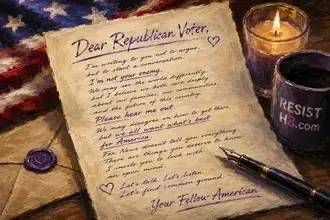 Dear Republican Voter,
I'm writing to you not to argue,
but to start a conversation.
I'm not your enemy.
We may see the world differently,
but I believe we both care deeply
about our families, our communities,
and the future of this country.
Please hear me out.
We may disagree on how to get there,
but we all want what's best
for America.
Fox News doesn't tell you everything.
There are facts you deserve to know.
I invite you to look with
an open mind.
Let's talk. Let's listen.
Let's find common ground.
Your Fellow American
RESIST
H8.com